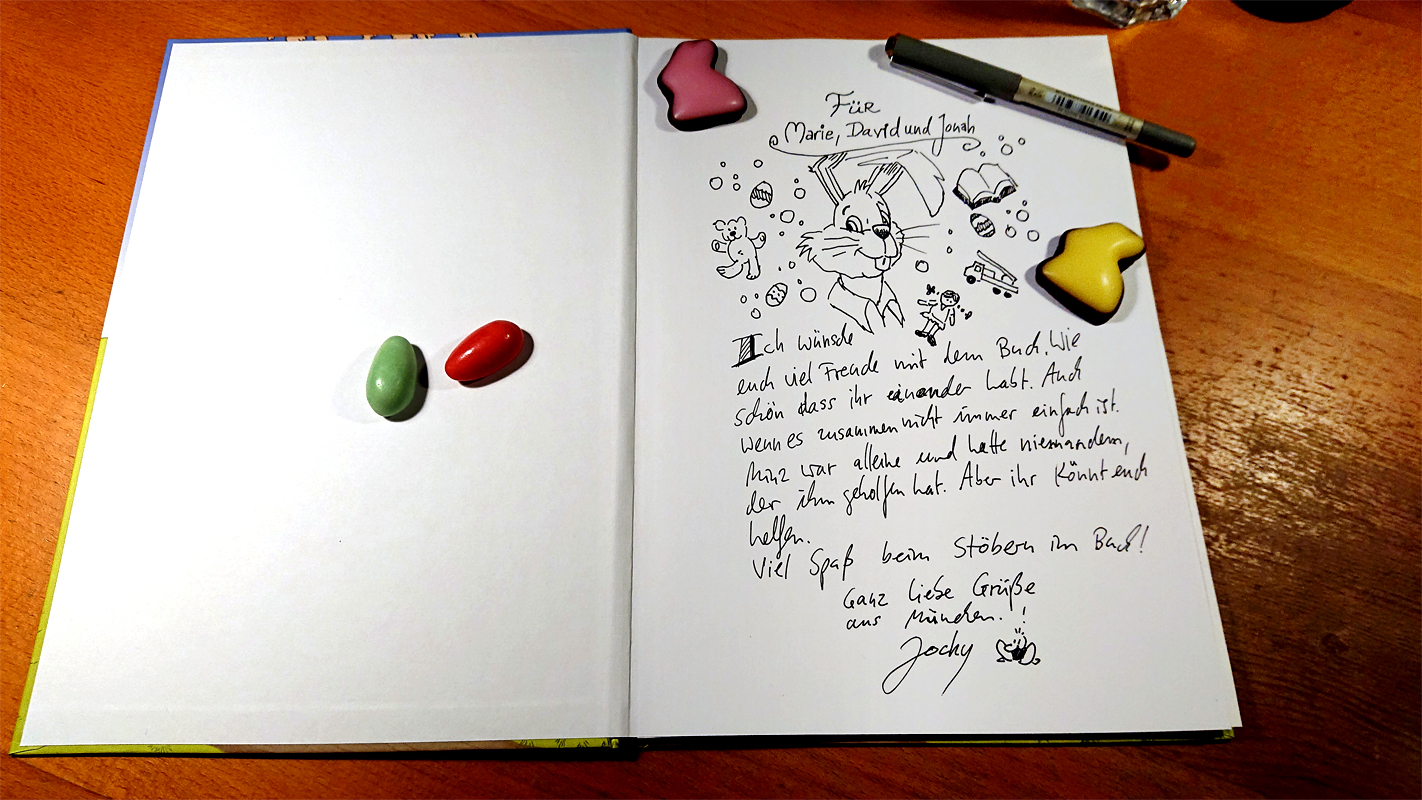 Für
Marie, David und Jonah
Ich wünsche
euch viel Freude mit dem Buch. Wie
schön dass ihr einander habt. Auch
wenn es zusammen nicht immer einfach ist.
Minz war alleine und hatte niemandem,
der ihm geholfen hat. Aber ihr könnt euch
helfen.
Viel Spaß beim Stöbern im Buch!
Ganz liebe Grüße
aus München.!
Jocky